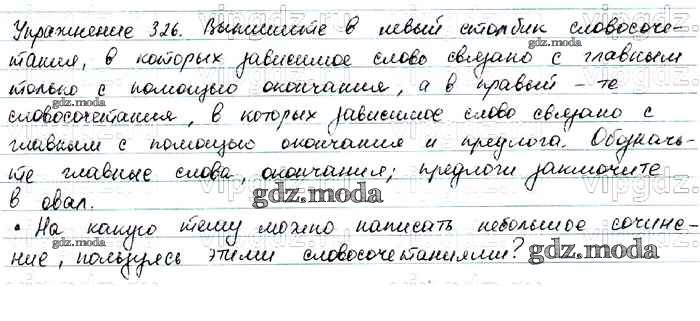 Упражнение 326. Выпишите в левый столбик словосоче-
тания, в которых зависимое слово связано с главным
только с помощью окончания, а в правый - те
словосочетания, в которых зависимое слово связано с
главным с помощью окончания и предлога. Обозначь-
те главные слова, окончания; предлоги заключите
в овал.
• На какую тему можно написать небольшое сочине-
ние, пользуясь этими словосочетаниями?
gdz.moda
gdz.moda
gdz.moda
gdz.moda
gdz.moda
gdz.moda
gdz.moda
gdz.moda